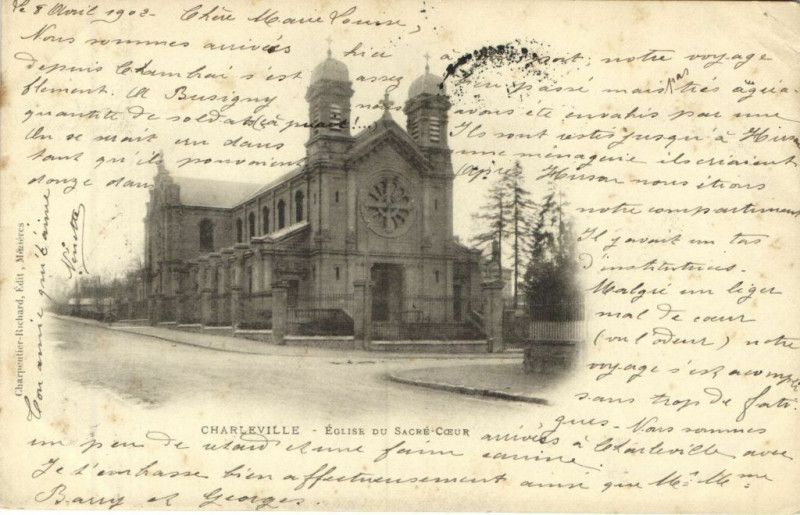 Le 8 Avril 1902 - Chère Marie Louise,
Nous sommes arrivés hier à
notre voyage
depuis Chambrai s'est assez bien passé mais pas très agréa-
blement. A Busigny nous avons été envahis par une
quantité de soldats (à pied !..) Ils sont restés jusqu'à Hirson
On se serait cru dans une ménagerie ils criaient
tant qu'ils pouvaient (Après Hirson nous étions
donze dans notre compartiment
Il y avait un tas
d'institutrices.
Malgré un léger
mal de cœur
(vu l'odeur) notre
voyage s'est acompli
sans trop de fati-
gues - Nous sommes
arrivés à Charleville avec
un peu de retard et une faim canine.
Je t'embrasse bien affectueusement ainsi que Mr Mme
Barry et Georges.
Ton amie qui t'aime
Ninette
Charpentier-Richard, Édit., Mézières
CHARLEVILLE - ÉGLISE DU SACRÉ-CŒUR